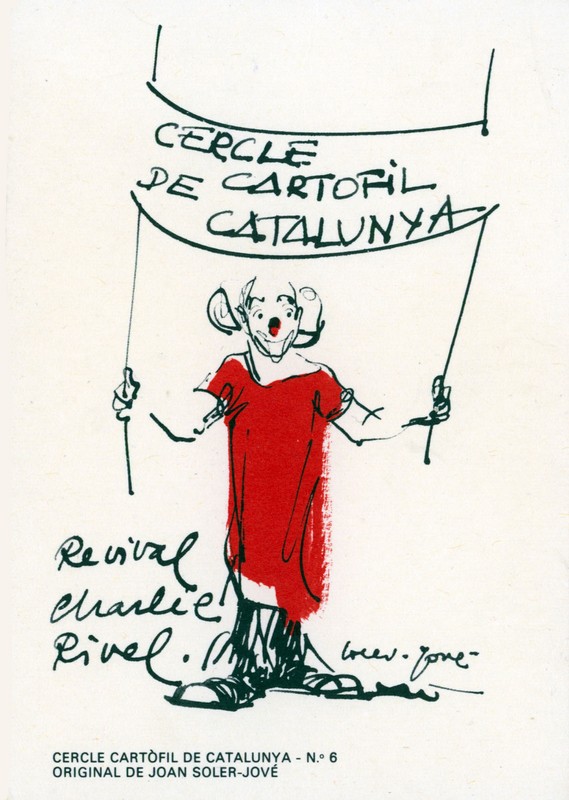 CERCLE
DE CARTOFIL
CATALUNYA
Revival
Charlie
Rivel.
Soler-Jové
CERCLE CARTÒFIL DE CATALUNYA - N.º 6
ORIGINAL DE JOAN SOLER-JOVÉ